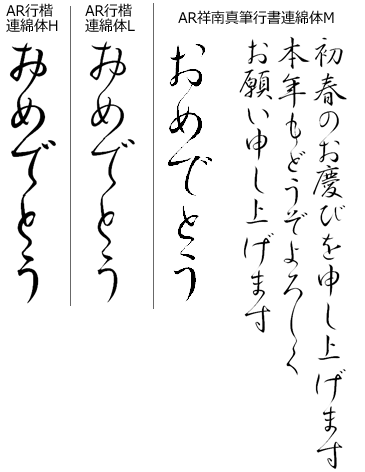 AR行楷
連綿体H
おめでとう
AR行楷
連綿体L
おめでとう
AR祥南真筆行書連綿体M
おめでとう
初春のお慶びを申し上げます
本年もどうぞよろしく
お願い申し上げます